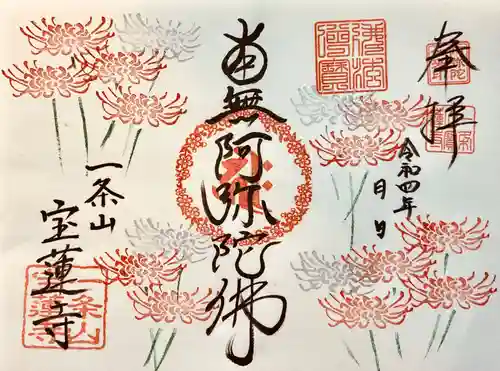 奉拝
令和四年 月 日
南無阿弥陀佛
一条山
宝蓮寺